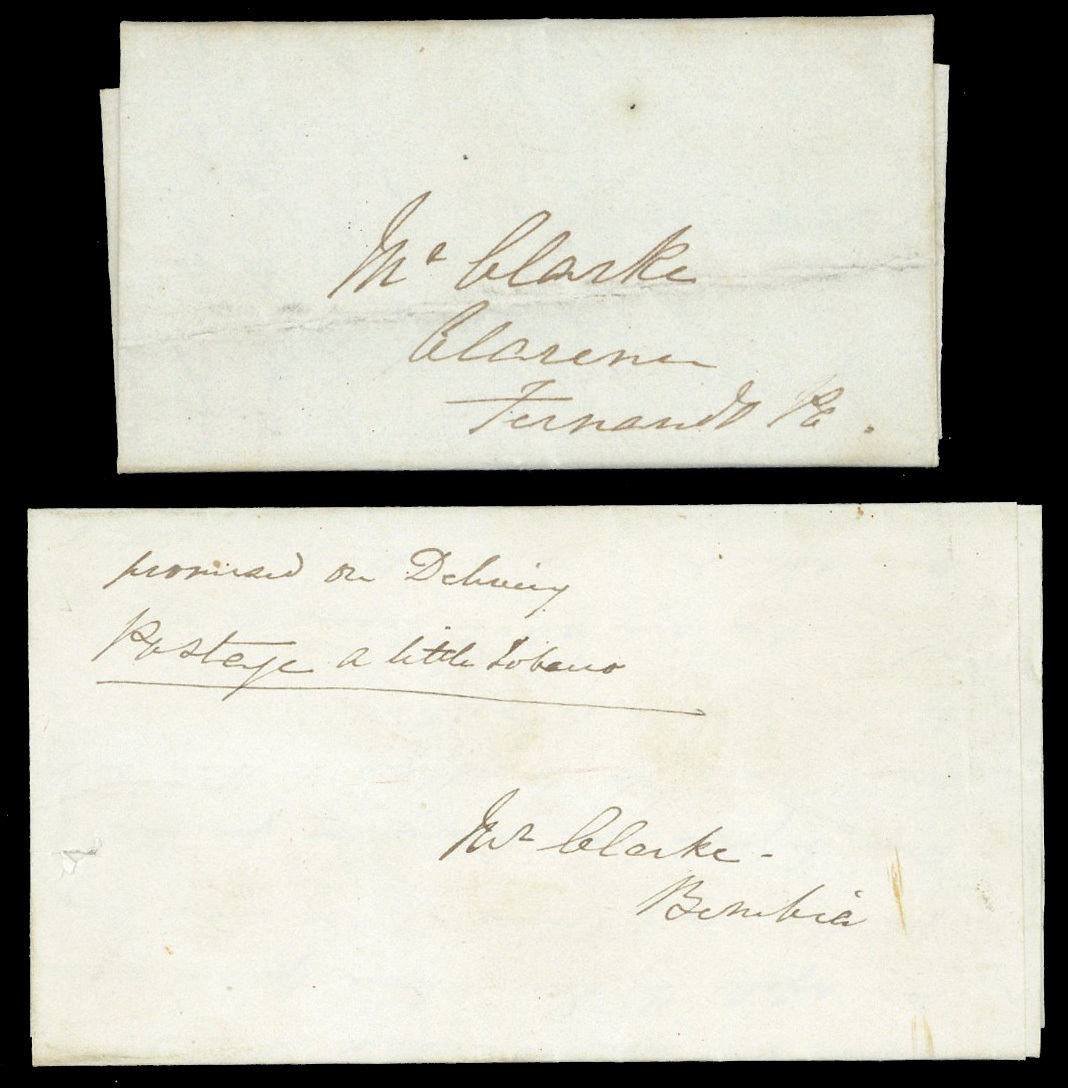 Mr Clarke
Clarence
Fernando Po.
promised on Delivery
Postage a little Tobacco
Mr Clarke -
Bimbia